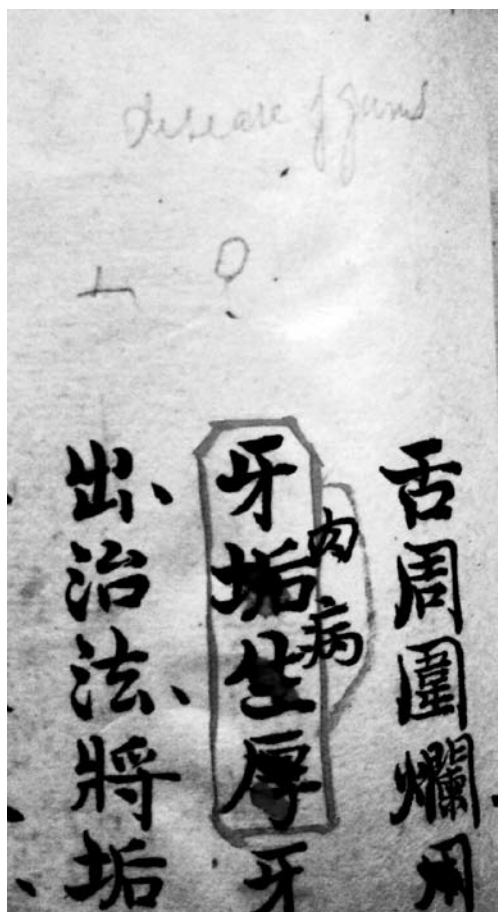 Disease of gums
舌周圍爛用
肉病
牙垢生厚牙
出、治法、將垢